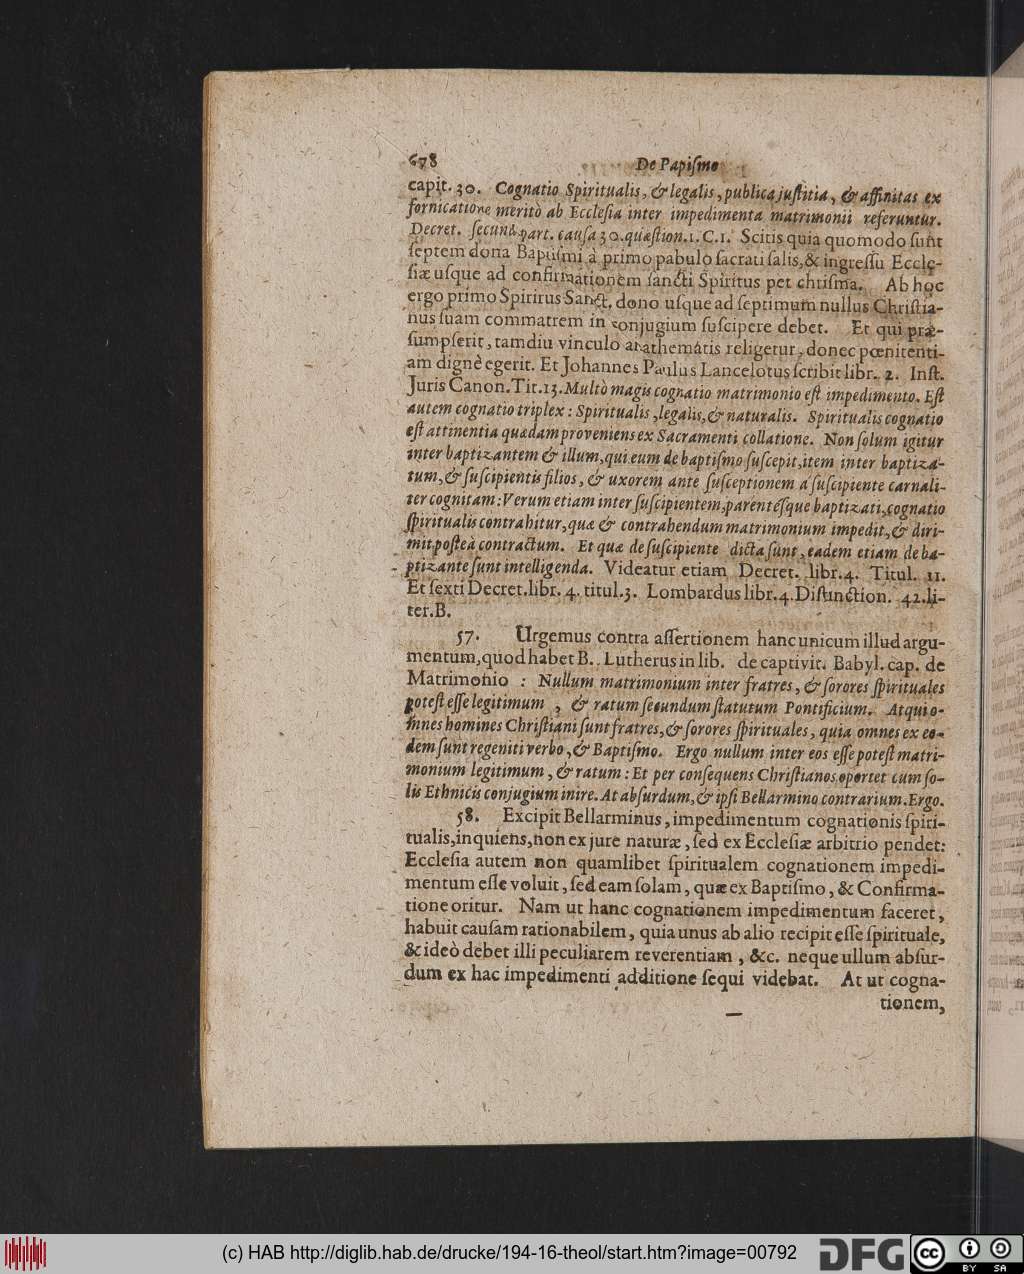 678 De Papiſmo
capit. 30. Cognatio Spiritualis, & legalis, publica juſtitia, & affinitas ex
fornicatione meritò ab Eccleſia inter impedimenta matrimonii referuntur.
Decret. ſecund. part. cauſa 30. quæſtion. 1. C. 1. Scitis quia quomodo ſunt
ſeptem dona Baptiſmi à primo pabulo ſacrati ſalis, & ingreſſu Eccle-
ſiæ uſque ad confirmationem ſancti Spiritus per chriſma. Ab hoc
ergo primo Spiritus Sanct. dono uſque ad ſeptimum nullus Chriſtia-
nus ſuam commatrem in conjugium ſuſcipere debet. Et qui præ-
ſumpſerit, tamdiu vinculo anathematis religetur, donec pœnitenti-
am dignè egerit. Et Johannes Paulus Lancelotus ſcribit libr. 2. Inſt.
Juris Canon. Tit. 13. Multò magis cognatio matrimonio eſt impedimento. Eſt
autem cognatio triplex: Spiritualis, legalis, & naturalis. Spiritualis cognatio
eſt attinentia quædam proveniens ex Sacramenti collatione. Non ſolum igitur
inter baptizantem & illum, qui eum de baptiſmo ſuſcepit, item inter baptiza-
tum, & ſuſcipientis filios, & uxorem ante ſuſceptionem a ſuſcipiente carnali-
ter cognitam: Verum etiam inter ſuſcipientem, parenteſque baptizati, cognatio
ſpiritualis contrahitur, quæ & contrahendum matrimonium impedit, & diri-
mit poſteà contractum. Et quæ de ſuſcipiente dicta ſunt, eadem etiam de ba-
ptizante ſunt intelligenda. Videatur etiam Decret. libr. 4. Titul. 11.
Et ſexti Decret. libr. 4. titul. 3. Lombardus libr. 4. Diſtinction. 42. li-
ter. B.
57. Urgemus contra aſſertionem hanc unicum illud argu-
mentum, quod habet B. Lutherus in lib. de captivit. Babyl. cap. de
Matrimonio : Nullum matrimonium inter fratres, & ſorores ſpirituales
poteſt eſſe legitimum, & ratum ſecundum ſtatutum Pontificium. Atqui o-
mnes homines Chriſtiani ſunt fratres, & ſorores ſpirituales, quia omnes ex eo-
dem ſunt regeniti verbo, & Baptiſmo. Ergo nullum inter eos eſſe poteſt matri-
monium legitimum, & ratum: Et per conſequens Chriſtianos oportet cum ſo-
lis Ethnicis conjugium inire. At abſurdum, & ipſi Bellarmino contrarium. Ergo.
58. Excipit Bellarminus, impedimentum cognationis ſpiri-
tualis, inquiens, non ex jure naturæ, ſed ex Eccleſiæ arbitrio pendet:
Eccleſia autem non quamlibet ſpiritualem cognationem impedi-
mentum eſſe voluit, ſed eam ſolam, quæ ex Baptiſmo, & Confirma-
tione oritur. Nam ut hanc cognationem impedimentum faceret,
habuit cauſam rationabilem, quia unus ab alio recipit eſſe ſpirituale,
& ideò debet illi peculiarem reverentiam, &c. neque ullum abſur-
dum ex hac impedimenti additione ſequi videbat. At ut cogna-
tionem,
(c) HAB http://diglib.hab.de/drucke/194-16-theol/start.htm?image=00792
DFG
cc BY SA